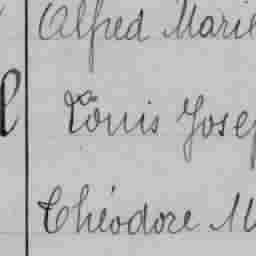 Alfred Marie
Louis Josep
Théodore M